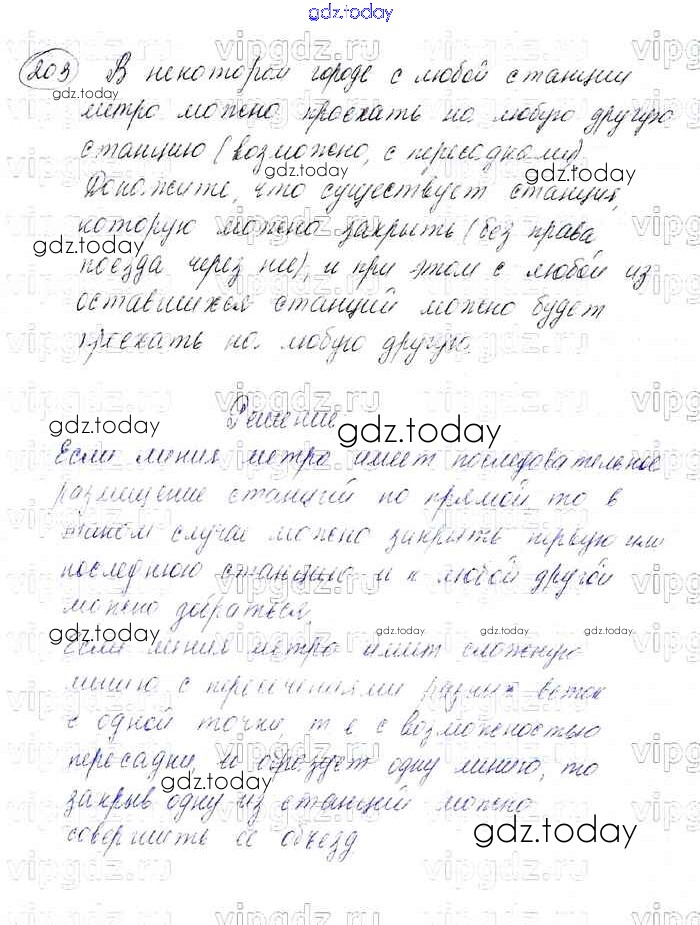 gdz.today
203 В некотором городе с любой станции
метро можно проехать на любую другую
станцию (возможно, с пересадками).
Докажите, что существует станция,
которую можно закрыть (без права
поезда через нее), и при этом с любой из
оставшихся станций можно будет
проехать на любую другую.
Решение
Если линия метро имеет последовательное
размещение станций по прямой, то в
таком случае можно закрыть первую или
последнюю станцию и к любой другой
можно добраться.
Если линия метро имеет сложную
линию с пересечениями разных веток
с одной точки, т е с возможностью
пересадки, и образует одну линию, то
закрыв одну из станций можно
совершить ее объезд